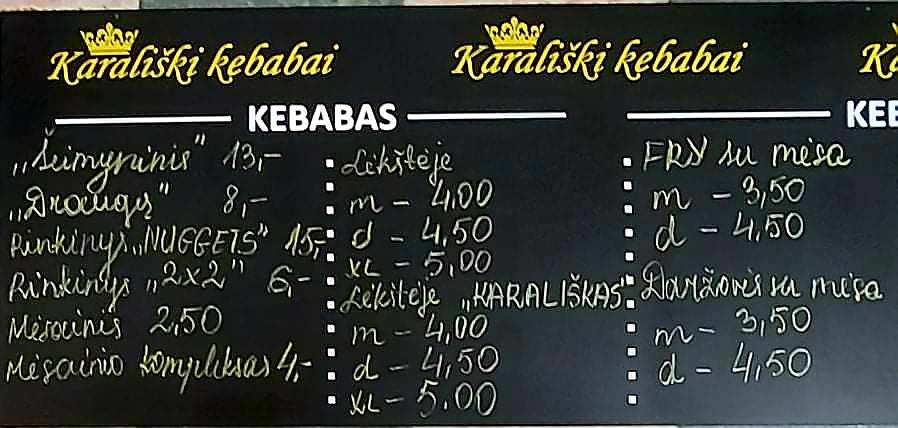 Karališki kebabai
Karališki kebabai
Ka
KEBABAS
KEB
„Šeimyninis" 13,-
„Draugų" 8,-
Rinkinys „NUGGETS" 15,-
Rinkinys „2x2" 6,-
Mėsainis 2,50
Mėsainio kompleksas 4,-
Lėkštėje
m - 4,00
d - 4,50
XL - 5,00
Lėkštėje „KARALIŠKAS"
m - 4,00
d - 4,50
XL - 5,00
FRY su mėsa
m - 3,50
d - 4,50
Daržovės su mėsa
m - 3,50
d - 4,50